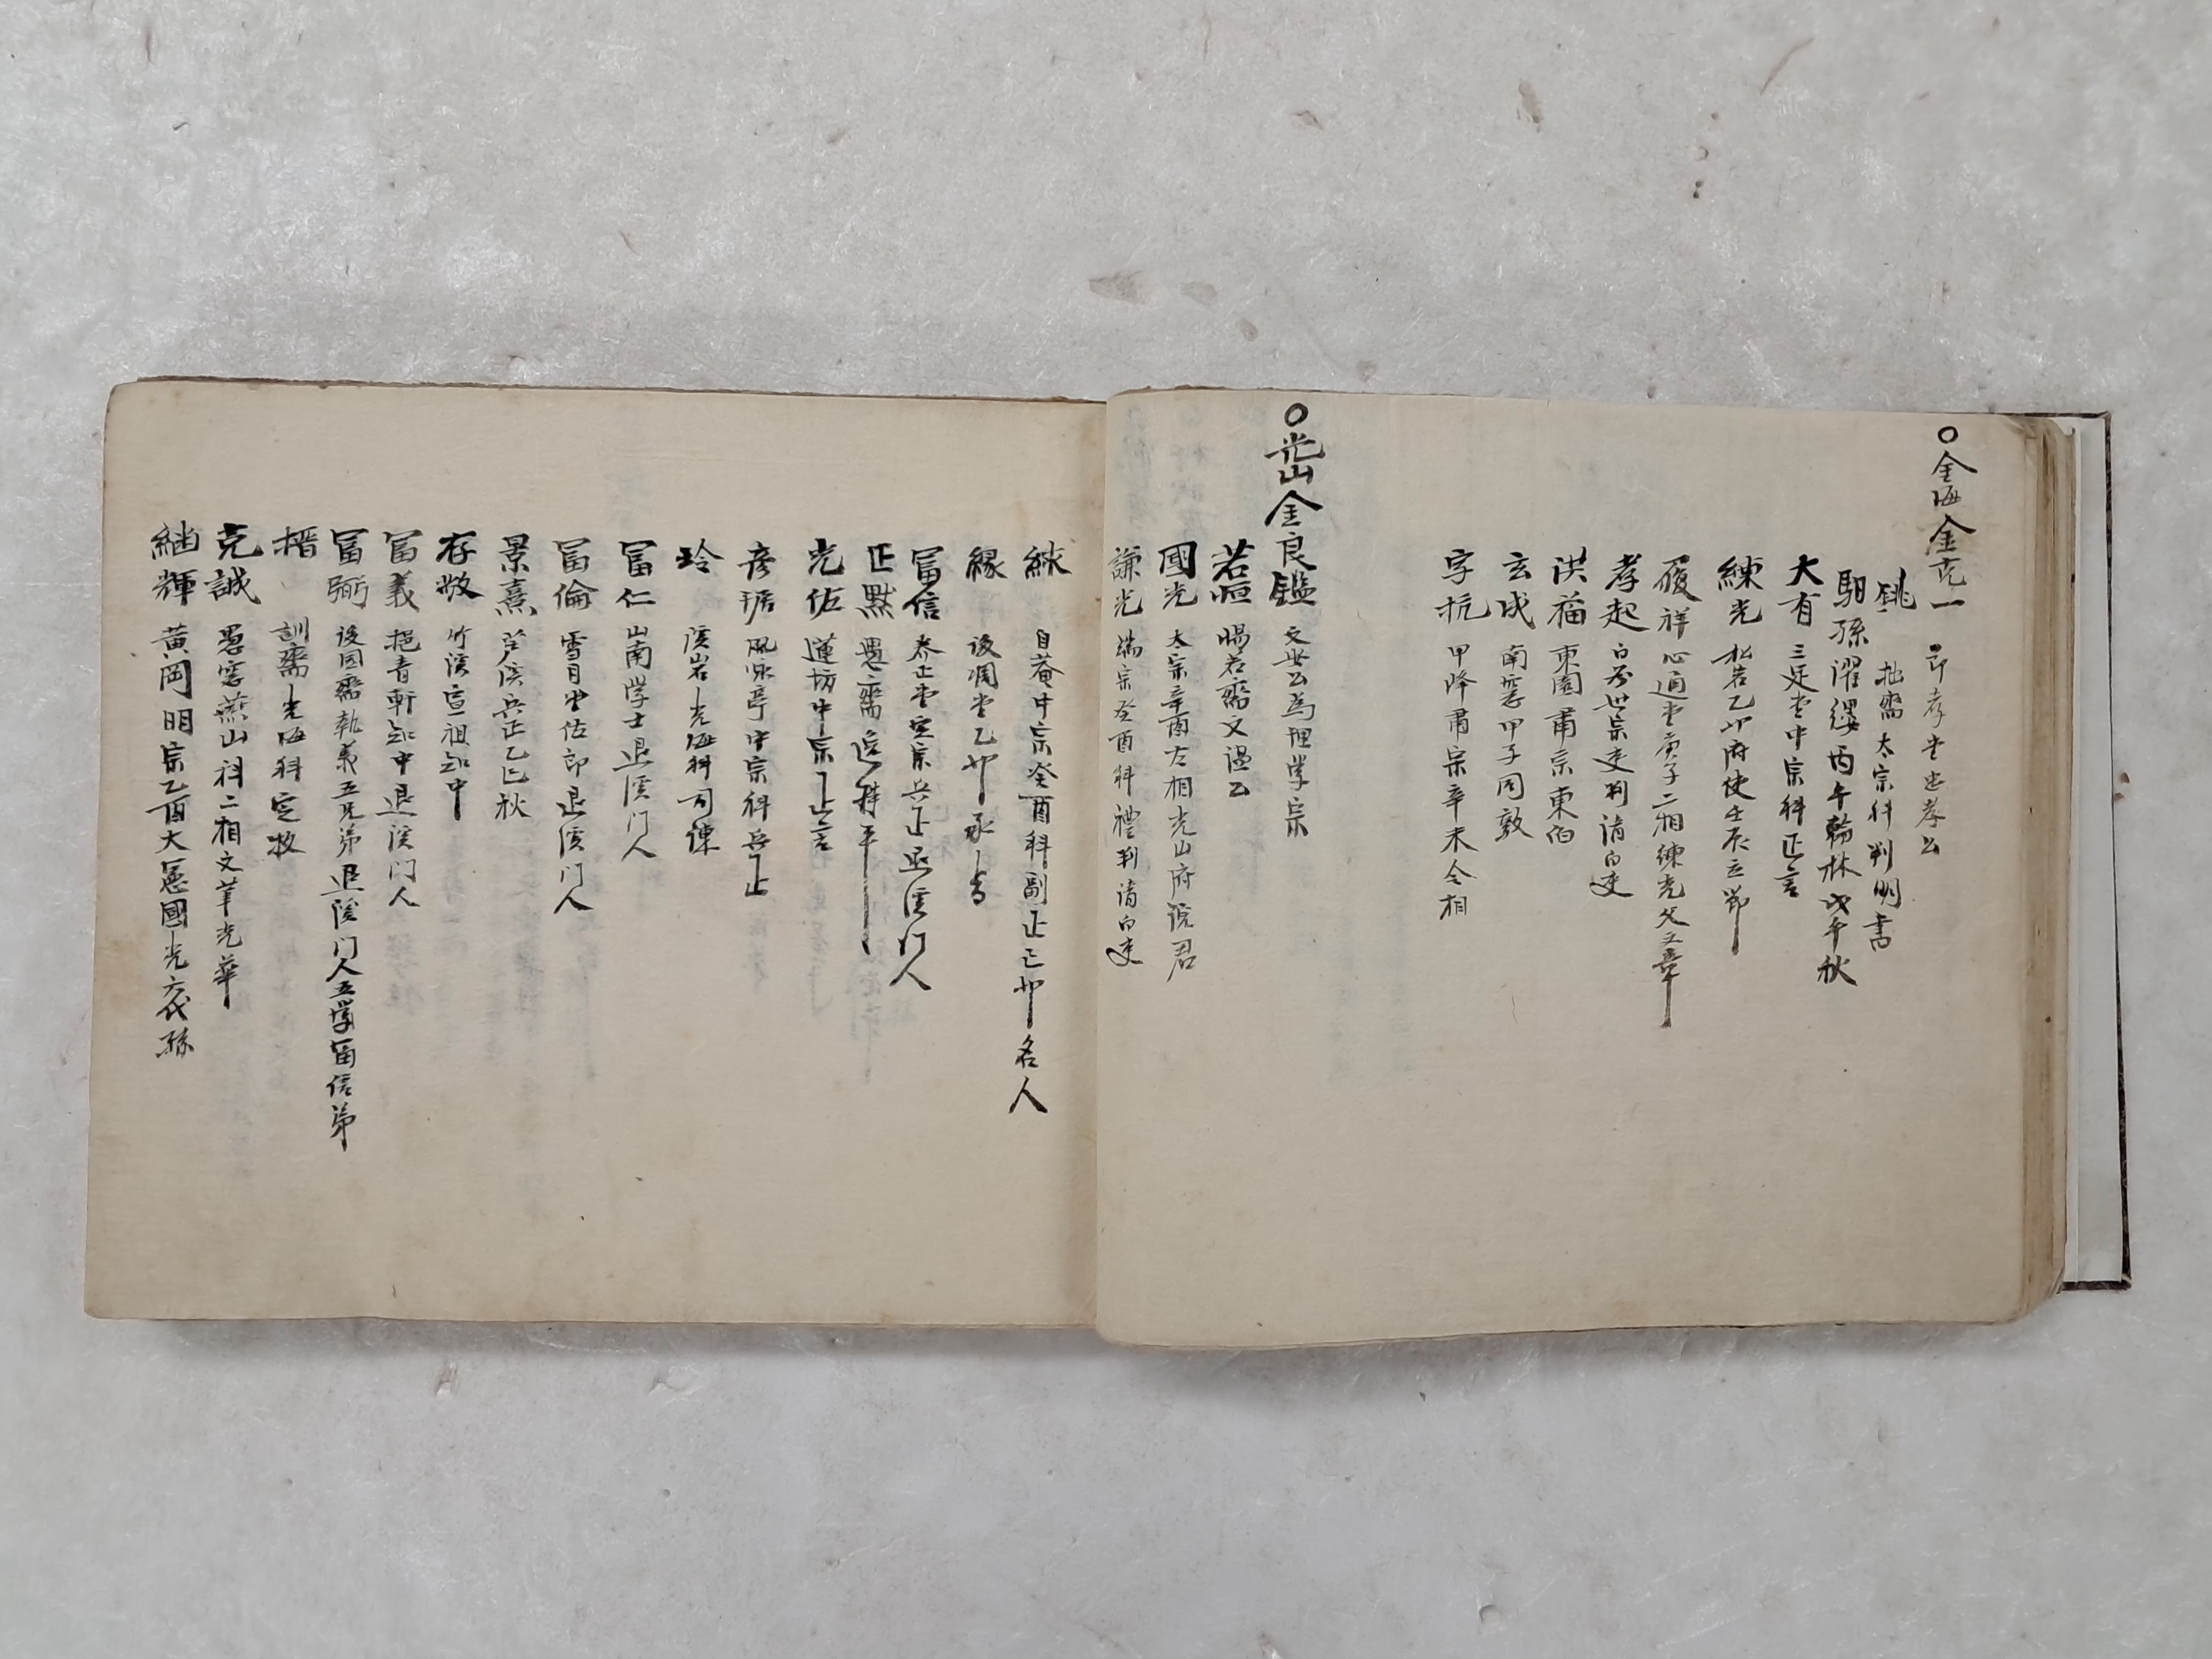 ○金海金克一 節孝堂忠孝公
銚 拙齋太宗科判明書
馹孫 濯纓丙午翰林戊午秋
大有 三足堂中宗科正言
練光 松岩乙卯府使壬辰立節
履祥 心通堂庚子二相練光父文章
孝起 世宗吏判清白吏
洪福 東園肅宗東伯
玄成 南窓甲子同敦
字杭 甲降肅宗辛未令相
○光山金良鑑 文安公為理学宗
若恒 惕若齋文温公
國光 太宗辛酉左相光山府院君
謙光 端宗癸酉科禮判清白吏
絿 自菴中宗癸酉科副正己卯名人
緣 後凋堂乙卯承旨
富信 養正堂宣宗兵正退溪門人
正默 愚齋持平
光佐 蓮坊中宗正言
彦琚 風泳亭中宗科兵正
玲 溪岩光海科司諫
富仁 山南学士退溪门人
富倫 雪月堂佐郎退溪门人
景熹 芦溪兵正乙巳秋
存敬 竹溪宣祖知中
富義 挹青軒知中退溪门人
富弼 後凋齋執義五兄弟退溪门人五學富信弟
搢 訓齋光海科定牧
克誠 憂亭燕山科二相文筆光華
繼輝 黃岡明宗乙酉大憲國光六代孫